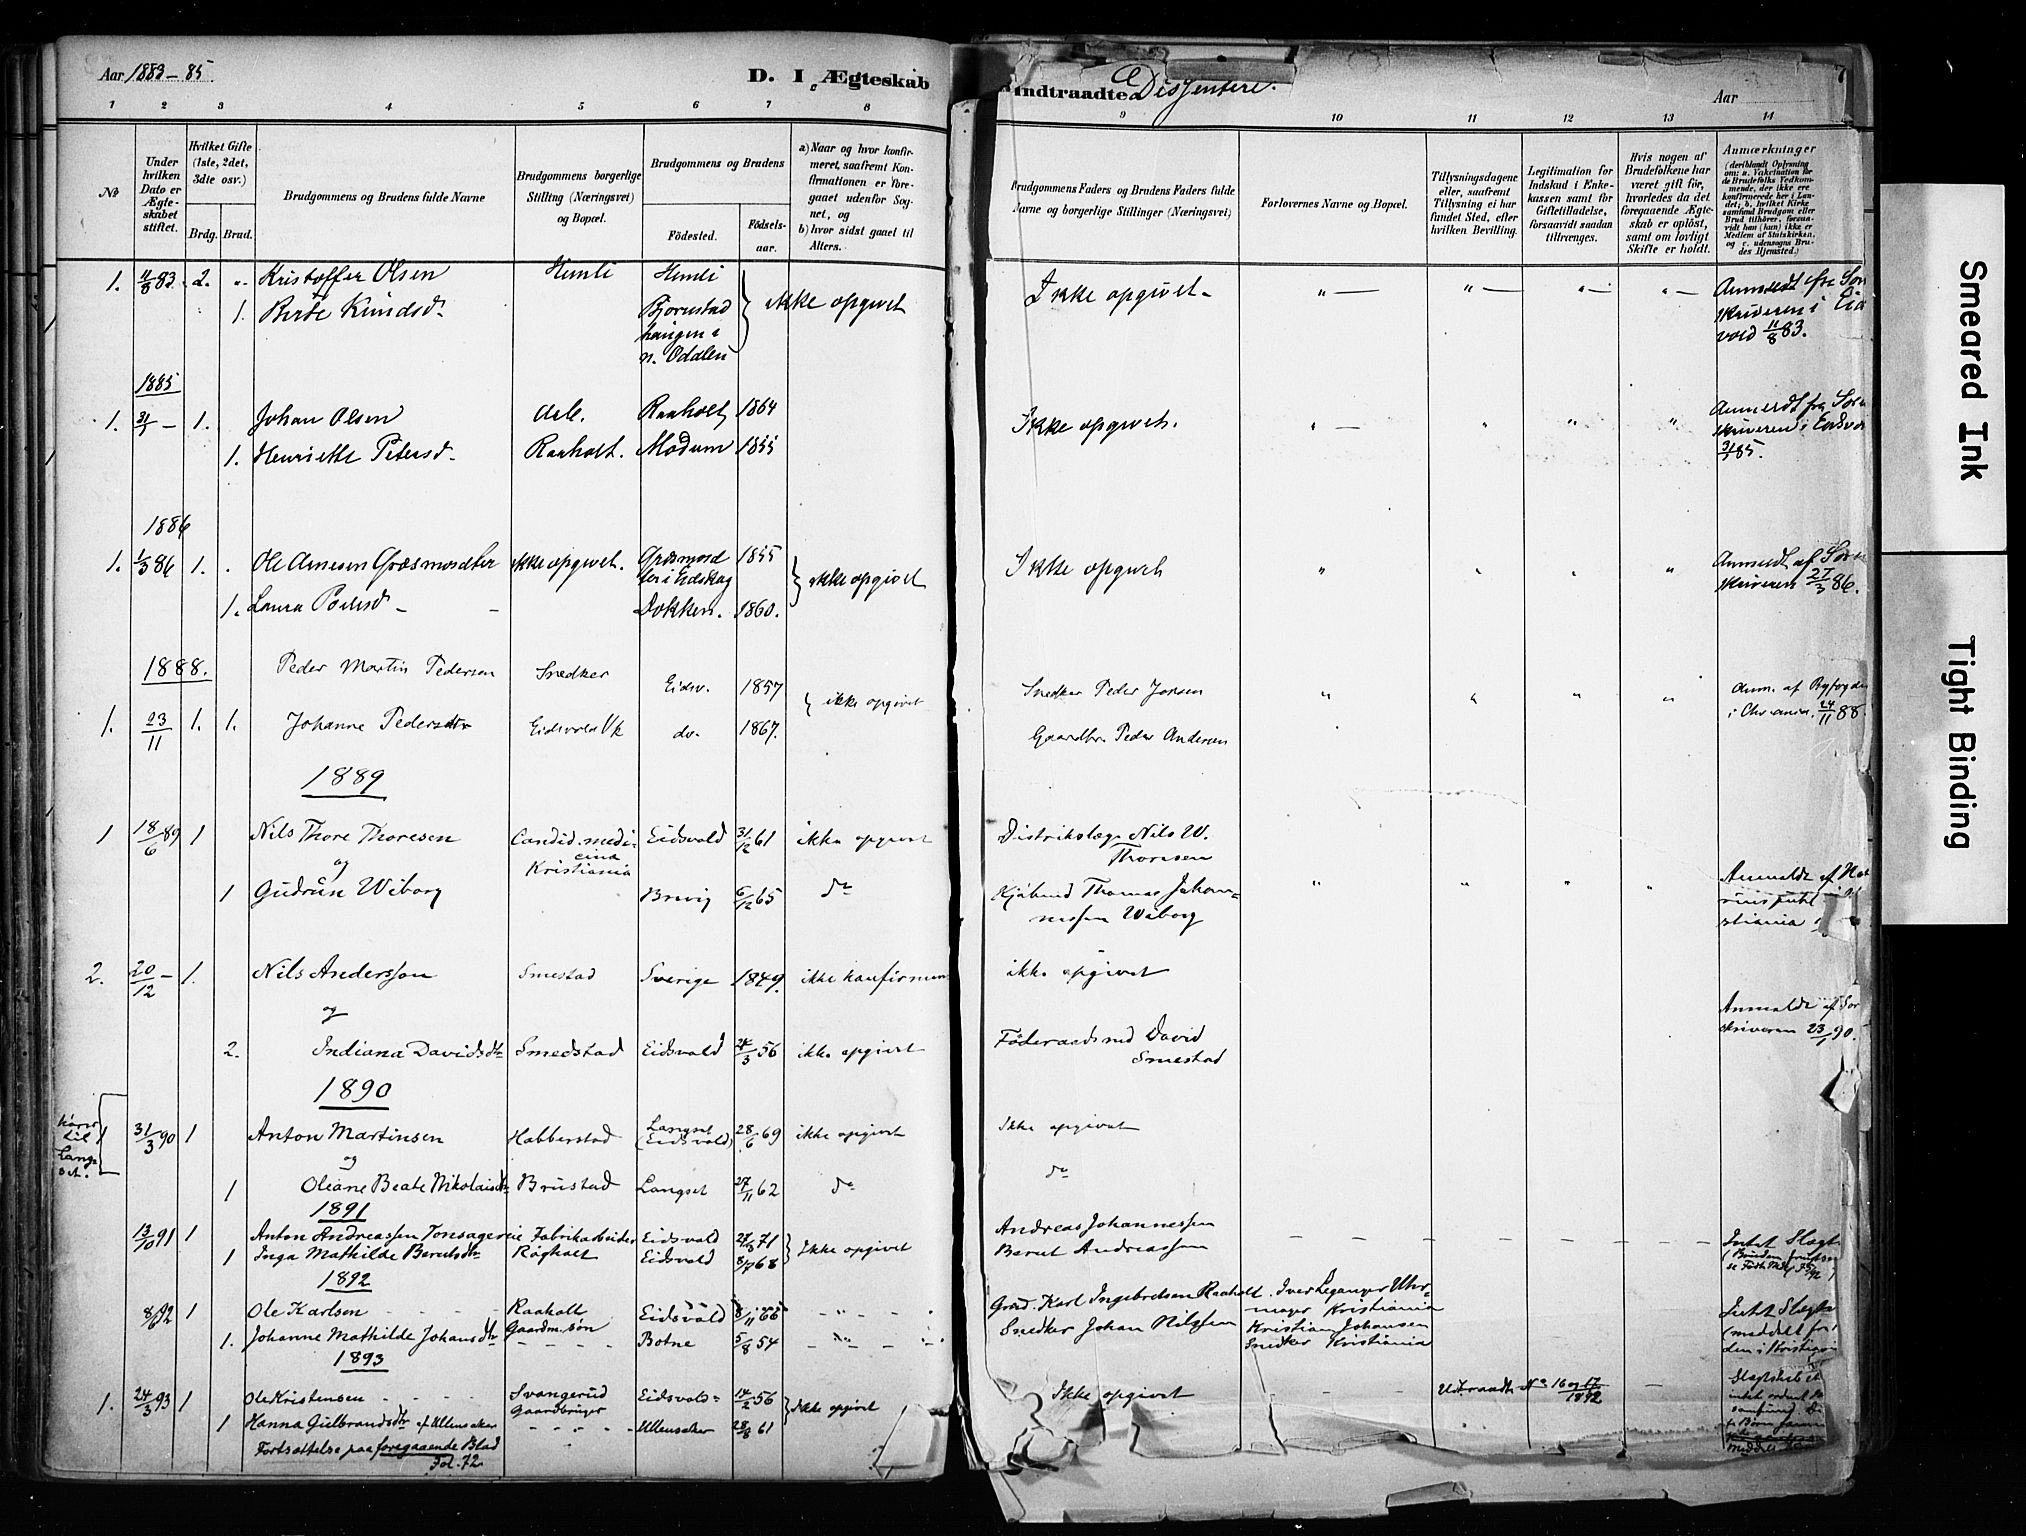 Aar 1883-85.
D. I Ægteskab
Indtraadte Dissentere.
Aar
7
1 2 3 4 5 6 7 8 9 10 11 12 13 14
No
Under hvilken Dato er Ægteskabet stiftet.
Hvilket Gifte (1ste, 2det, 3die osv.)
Brdg. Brud.
Brudgommens og Brudens fulde Navne
Brudgommens borgerlige Stilling (Næringsvei) og Bopæl.
Brudgommens og Brudens
Födested.
Födselsaar.
a) Naar og hvor konfirmeret, saafremt Konfirmationen er foregaaet udenfor Sognet, og
b) hvor sidst gaaet til Alters.
Brudgommens Faders og Brudens Faders fulde Navne og borgerlige Stillinger (Næringsvei)
Forlovernes Navne og Bopæl.
Tillysningsdagene eller, saafremt Tillysning ei har fundet Sted, efter hvilken Bevilling.
Legitimation for Indskud i Enkekassen samt for Giftetilladelse, forsaavidt saadan tiltrænges.
Hvis nogen af Brudefolkene har været gift för, hvorledes da det foregaaende Ægteskab er oplöst, samt om lovligt Skifte er holdt.
Anmærkninger
(deriblandt Oplysning om: a. Vakcination for de Brudefolks Vedkommende, der ikke ere konfirmerede her i Landet; b. hvilket Kirkesamfund Brudgom eller Brud tilhörer, forsaavidt han (hun) ikke er Medlem af Statskirken, og c. udensogns Brudes Hjemsted.
1. 11/8 83 2. " Kristoffer Olsen Hemli Hemli ikke opgivet Ikke opgivet. " — " — " — " — Anmeldt fra Sor
1. Berte Knudsd. Bjørnstad skriveren i Eid
haugen i vold 11/8 83.
n. Odalen
1885
1. 31/7 — 1. Johan Olsen Raaholt 1864 Ikke opgivet. Anmeldt fra Soren
1. Henriette Petersd. Raaholt. Modum 1855 skriveren i Eidsvo
1886
1. 1/3 86 1. Ole Arnesen Græsmordter ikke opgivet. Græsmord 1855 ikke opgivet Ikke opgivet Anmeldt af Soren
ter i Eidskog skriveren 27/3 86.
1. Laura — Dokken. 1860.
1888. Peder Martin Pedersen Snedker Eidsv. 1857 ikke opgivet Snedker Peder Jonsen Anm. af Byfogden
1. 23/11 1. 1. Johanne Pedersdtr Eidsvolds Vk do. 1867. Gaardbr. Peder Andersen 24/11 88.
1889
1 18/6 89 1 Nils Thore Thoresen Candid. medi- Eidsvold 31/12 61 ikke opgivet Distriktslæge Nils W.
og cina Thoresen
Kristiania
1 Gudrun Wiborg Brevig 6/12 65 do Kjøbmd Thomas Johan- Anmeldt af
nessen Wiborg stiania
2. 20/12 — 1. Nils Andersson Smestad Sverige 1849. ikke konfirmer ikke opgivet
og Anmeldt af Sor
2. Indiana Davidsdtr Smedstad Eidsvold 56 ikke opgivet Föderaadsmd David skriveren 23/1 90.
Smestad
1890
hører til Langset.
1 31/3 90 1 Anton Martinsen Habberstad Langset (Eidsvold) 28/6 69 ikke opgivet Ikke opgivet
og
1 Oleane Beate Nikolaisdtr Brustad Langset 27/11 62 do do
1891
13/10 91 1 Anton Andreassen Tonsagereie Fabrikarbeider Eidsvold 71 Ikke opgivet Andreas Johannessen Intet Slægt
1 Inga Mathilde Berntsdtr Røgholt Eidsvold 8/7 68 Bernt Andreassen
1892
8/6 92 1 Ole Karlsen Raaholt Eidsvold Grd. Karl Ingebretsen Raaholt Iver Leganger Uhr- Intet Slægts
Gaardm.søn mager Kristiania
1. Johanne Mathilde Johansdtr Botne 5/8 54 Snedker Johan Nilssen Kristian Johansen (meddelt fra
Snedker Kristiania den i Kristian
1893
1. 24/3 93 1 Ole Kristensen Svangerud Eidsvold 14/2 56 ikke opgivet Ikke opgivet Udtraadte No 16 og 17 / 1892
Gaardbruger
1 Hanna Gulbrandsdtr af Ullensaker Ullensaker 28/8 61
Fortsættelse paa foregaaende Blad
Fol. 72
Smeared Ink
Tight Binding